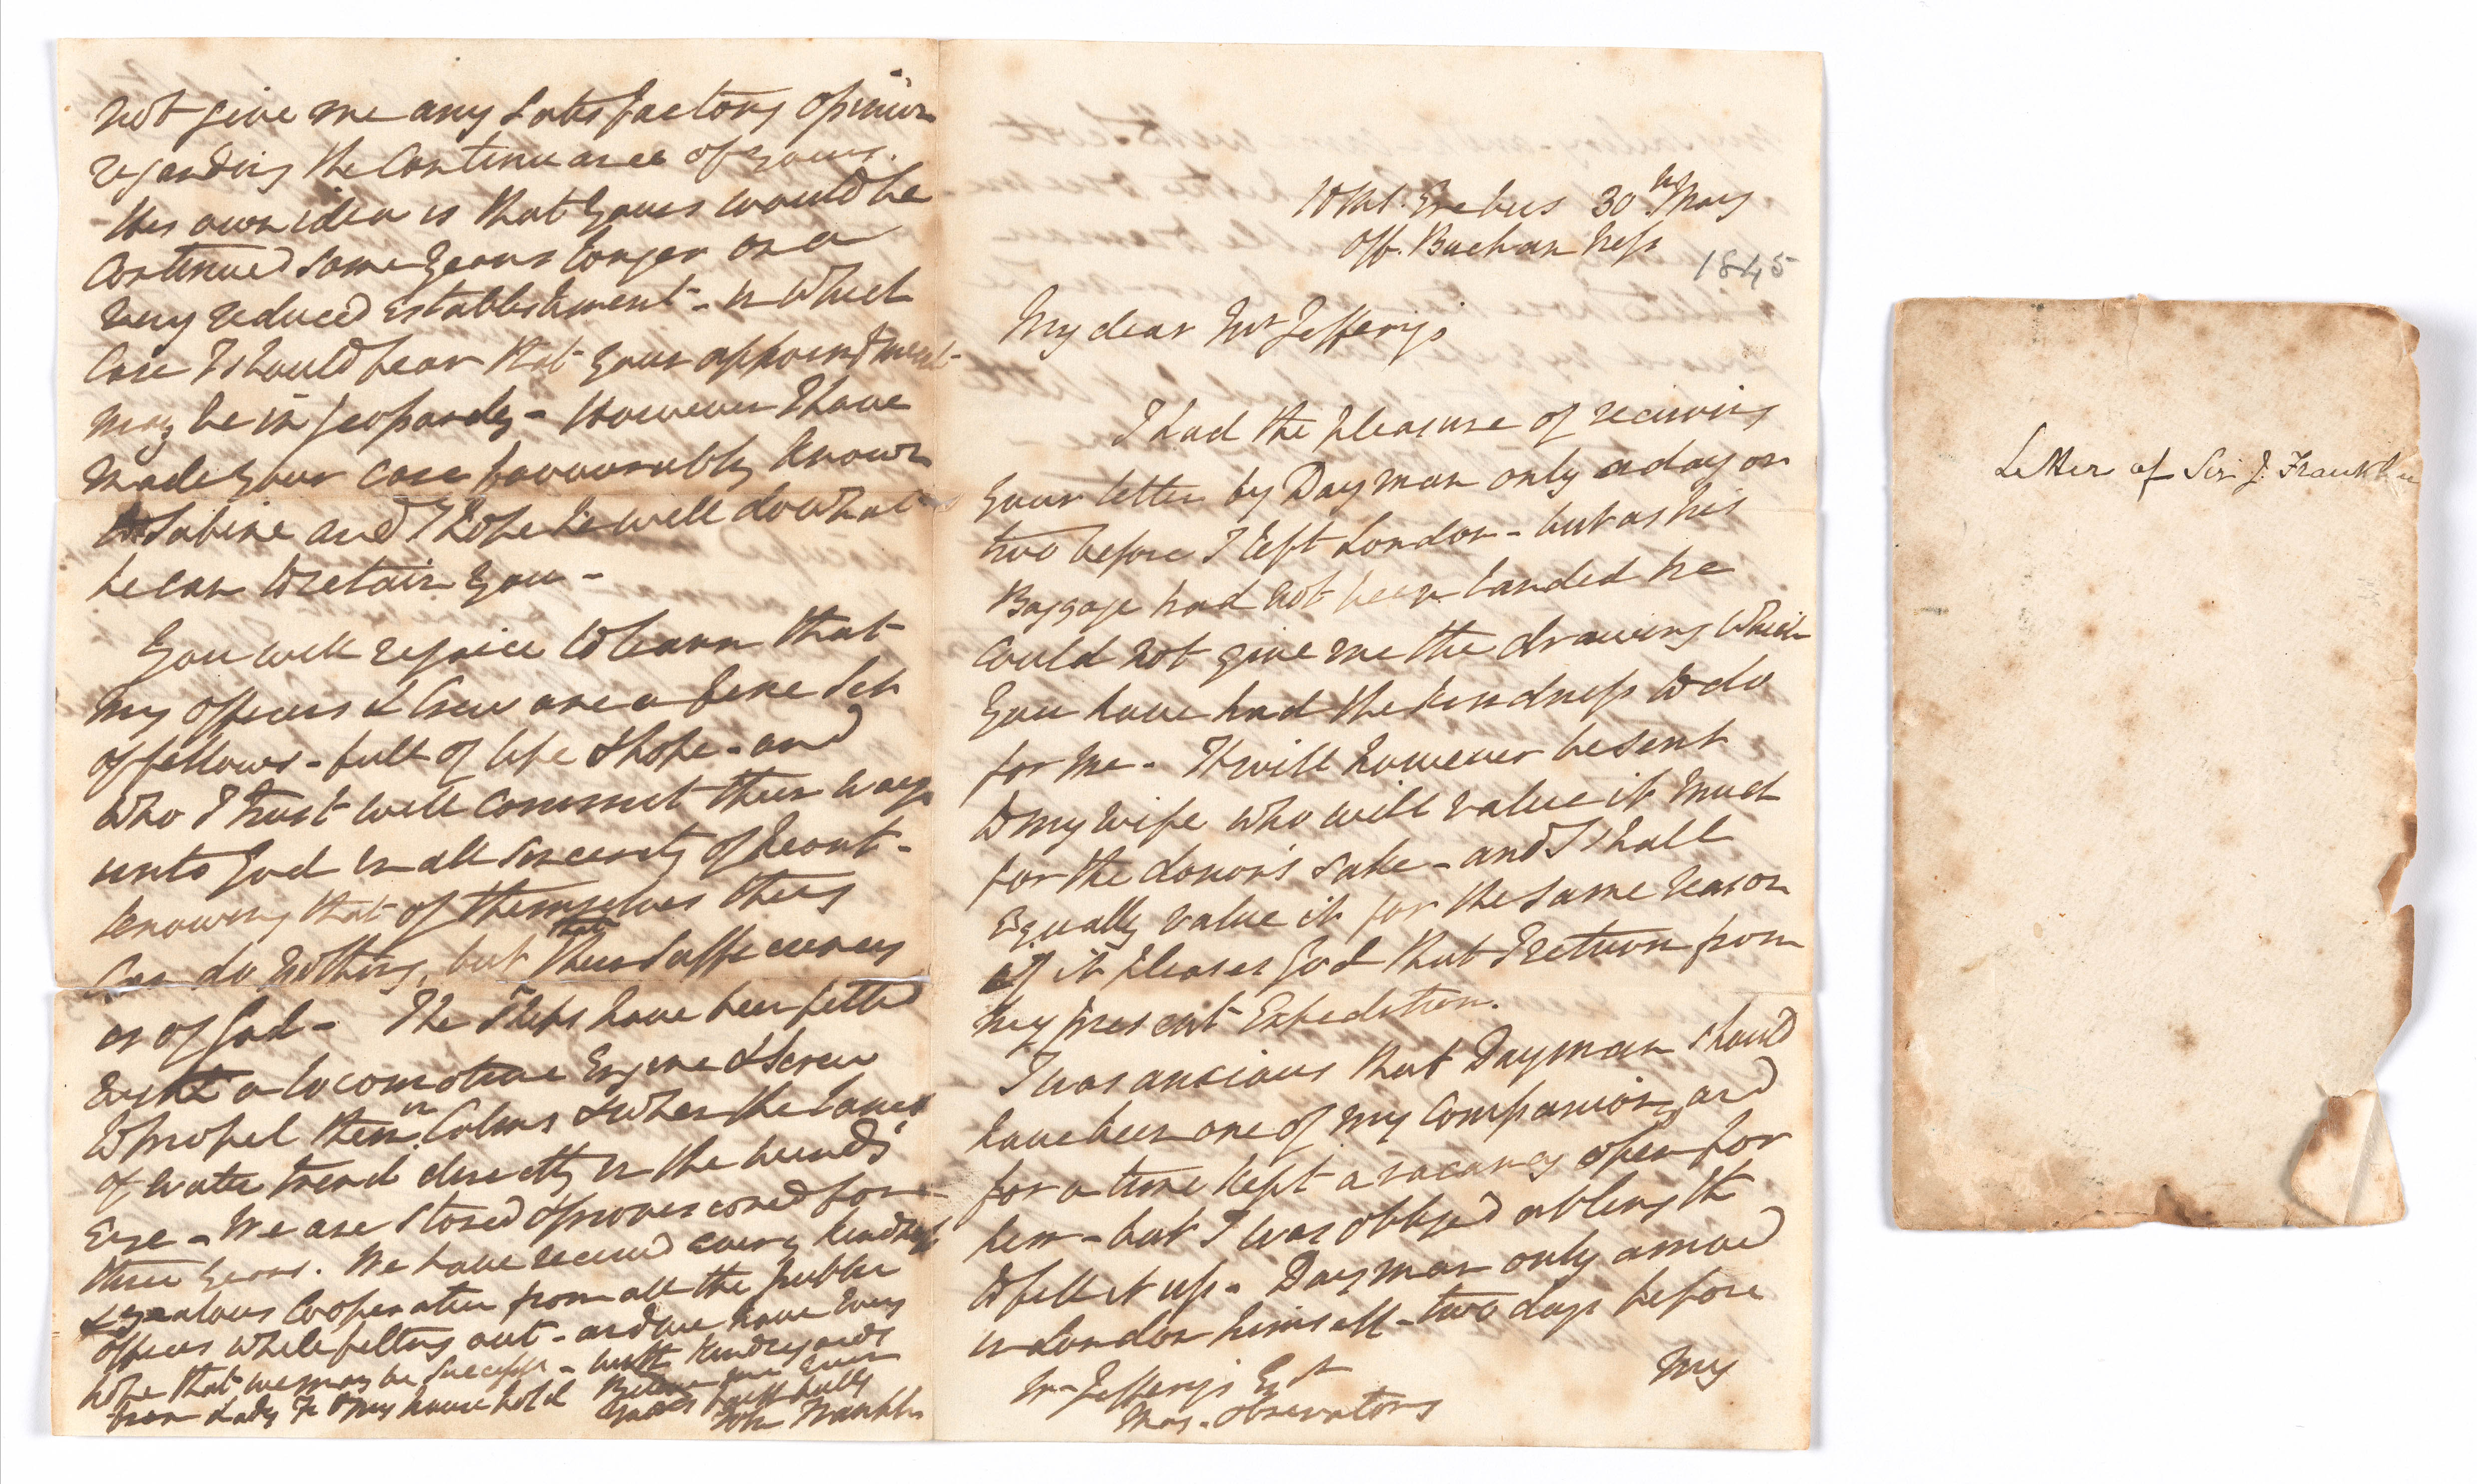 HMS. Erebus 30th May
Off. Buchan Ness
1845
My dear Mr Jefferys
I had the pleasure of receiving
your letter by Dayman only a day or
two before I left London - but as his
Baggage had not been landed he
could not give me the drawing which
you have had the kindness to do
for me - It will however be sent
to my wife who will value it much
for the donor's sake - and I shall
equally value it for the same reason
if it pleases God that I return from
my present Expedition.
I was anxious that Dayman should
have been one of my Companions, and
for a time kept a vacancy open for
him - but I was obliged at length
to fill it up. Dayman only arrived
in London himself - two days before
my
Mr Jefferys Esqr
Mag. Observatory
not give me any satisfactory opinion
regarding the Continuance of yours.
His own idea is that yours would be
continued some years longer on a
very reduced establishment - in which
case I should fear that your appointment
may be in jeopardy - However I have
made your case favourably known
to Sabine and I hope he will do what
he can to retain you -
You will rejoice to learn that
my officers & Crew are a fine set
of fellows - full of life & hope - and
who I trust will commit their ways
unto God in all sincerity of heart -
knowing that of themselves they
can do nothing, but that their sufficiency
is of God - The Ships have been fitted
with a locomotive Engine & Screw
to propel them in Calms & when the lanes
of water trend directly in the wind's
Eye - We are stored & provisioned for
three years. We have received every kindness
& zealous Cooperation from all the public
offices while fitting out - and we have every
hope that we may be successful - with kind regards
from Lady F & my household Believe me ever
yours faithfully
John Franklin
Letter of Sir J. Franklin